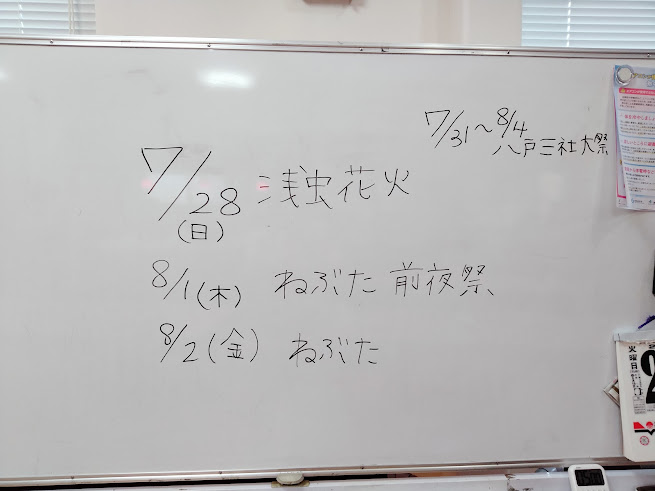 7/31～8/4
八戸三社大祭
7/28 浅虫花火
(日)
8/1(木) ねぶた 前夜祭
8/2(金) ねぶた
火曜日
2